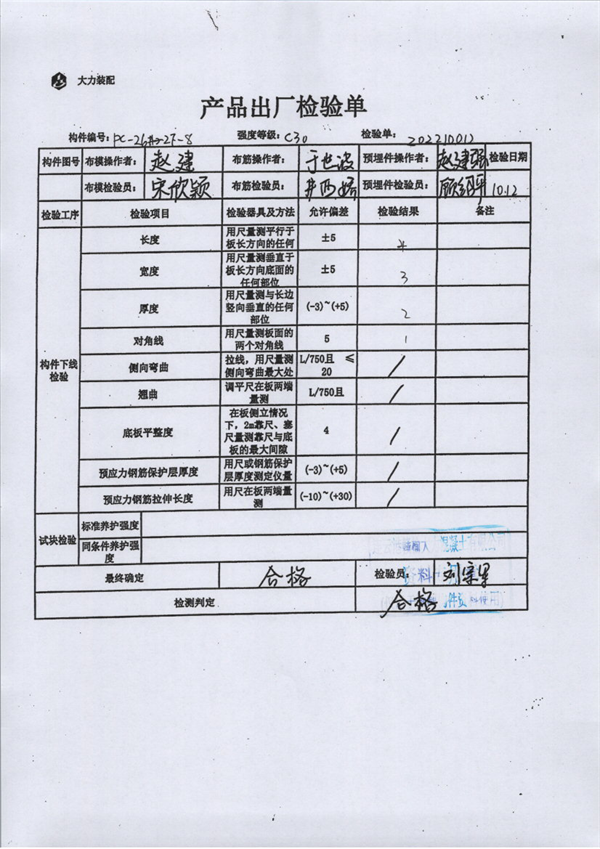 大力装配
产品出厂检验单
构件编号: 强度等级: C30 检验单: 20221012
构件图号 布模操作者: 赵建 布筋操作者: 于世波 预埋件操作者: 赵建强 检验日期
布模检验员: 宋欣颖 布筋检验员: 预埋件检验员: 10.12
检验工序 检验项目 检验器具及方法 允许偏差 检验结果 备注
构件下线检验
长度 用尺量测平行于板长方向的任何 ±5 4
宽度 用尺量测垂直于板长方向底面的任何部位 ±5 3
厚度 用尺量测与长边竖向垂直的任何部位 (-3)~(+5) 2
对角线 用尺量测板面的两个对角线 5 1
侧向弯曲 拉线，用尺量测侧向弯曲最大处 L/750且 ≤20 /
翘曲 调平尺在板两端量测 L/750且 /
底板平整度 在板侧立情况下，2m靠尺、塞尺量测靠尺与底板的最大间隙 4 /
预应力钢筋保护层厚度 用尺或钢筋保护层厚度测定仪量 (-3)~(+5) /
预应力钢筋拉伸长度 用尺在板两端量测 (-10)~(+30) /
试块检验 标准养护强度
同条件养护强度
最终确定 合格 检验员:
检测判定 合格